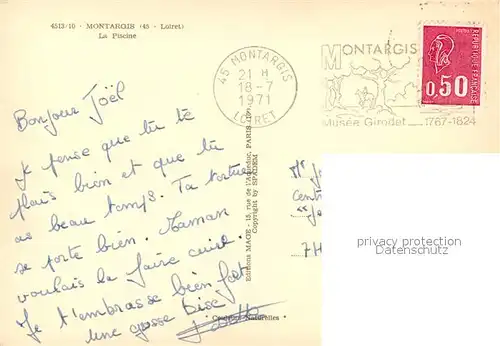 4513/10 - MONTARGIS (45 - Loiret)
La Piscine
45 MONTARGIS
21 H
18-7
1971
LOIRET
MONTARGIS
Musée Girodet 1767-1824
RÉPUBLIQUE FRANÇAISE
0,50
Bonjour Joël
Je pense que tu te
plais bien et que tu
as beau temps. Ta tortue
se porte bien. Maman
voulais la faire cuire.
Je t'embrasse bien fort
Une grosse bise
Editions MAGE - 15, rue de l'Aqueduc, PARIS
Copyright by SPADEM
Couleurs Naturelles
privacy protection
Datenschutz